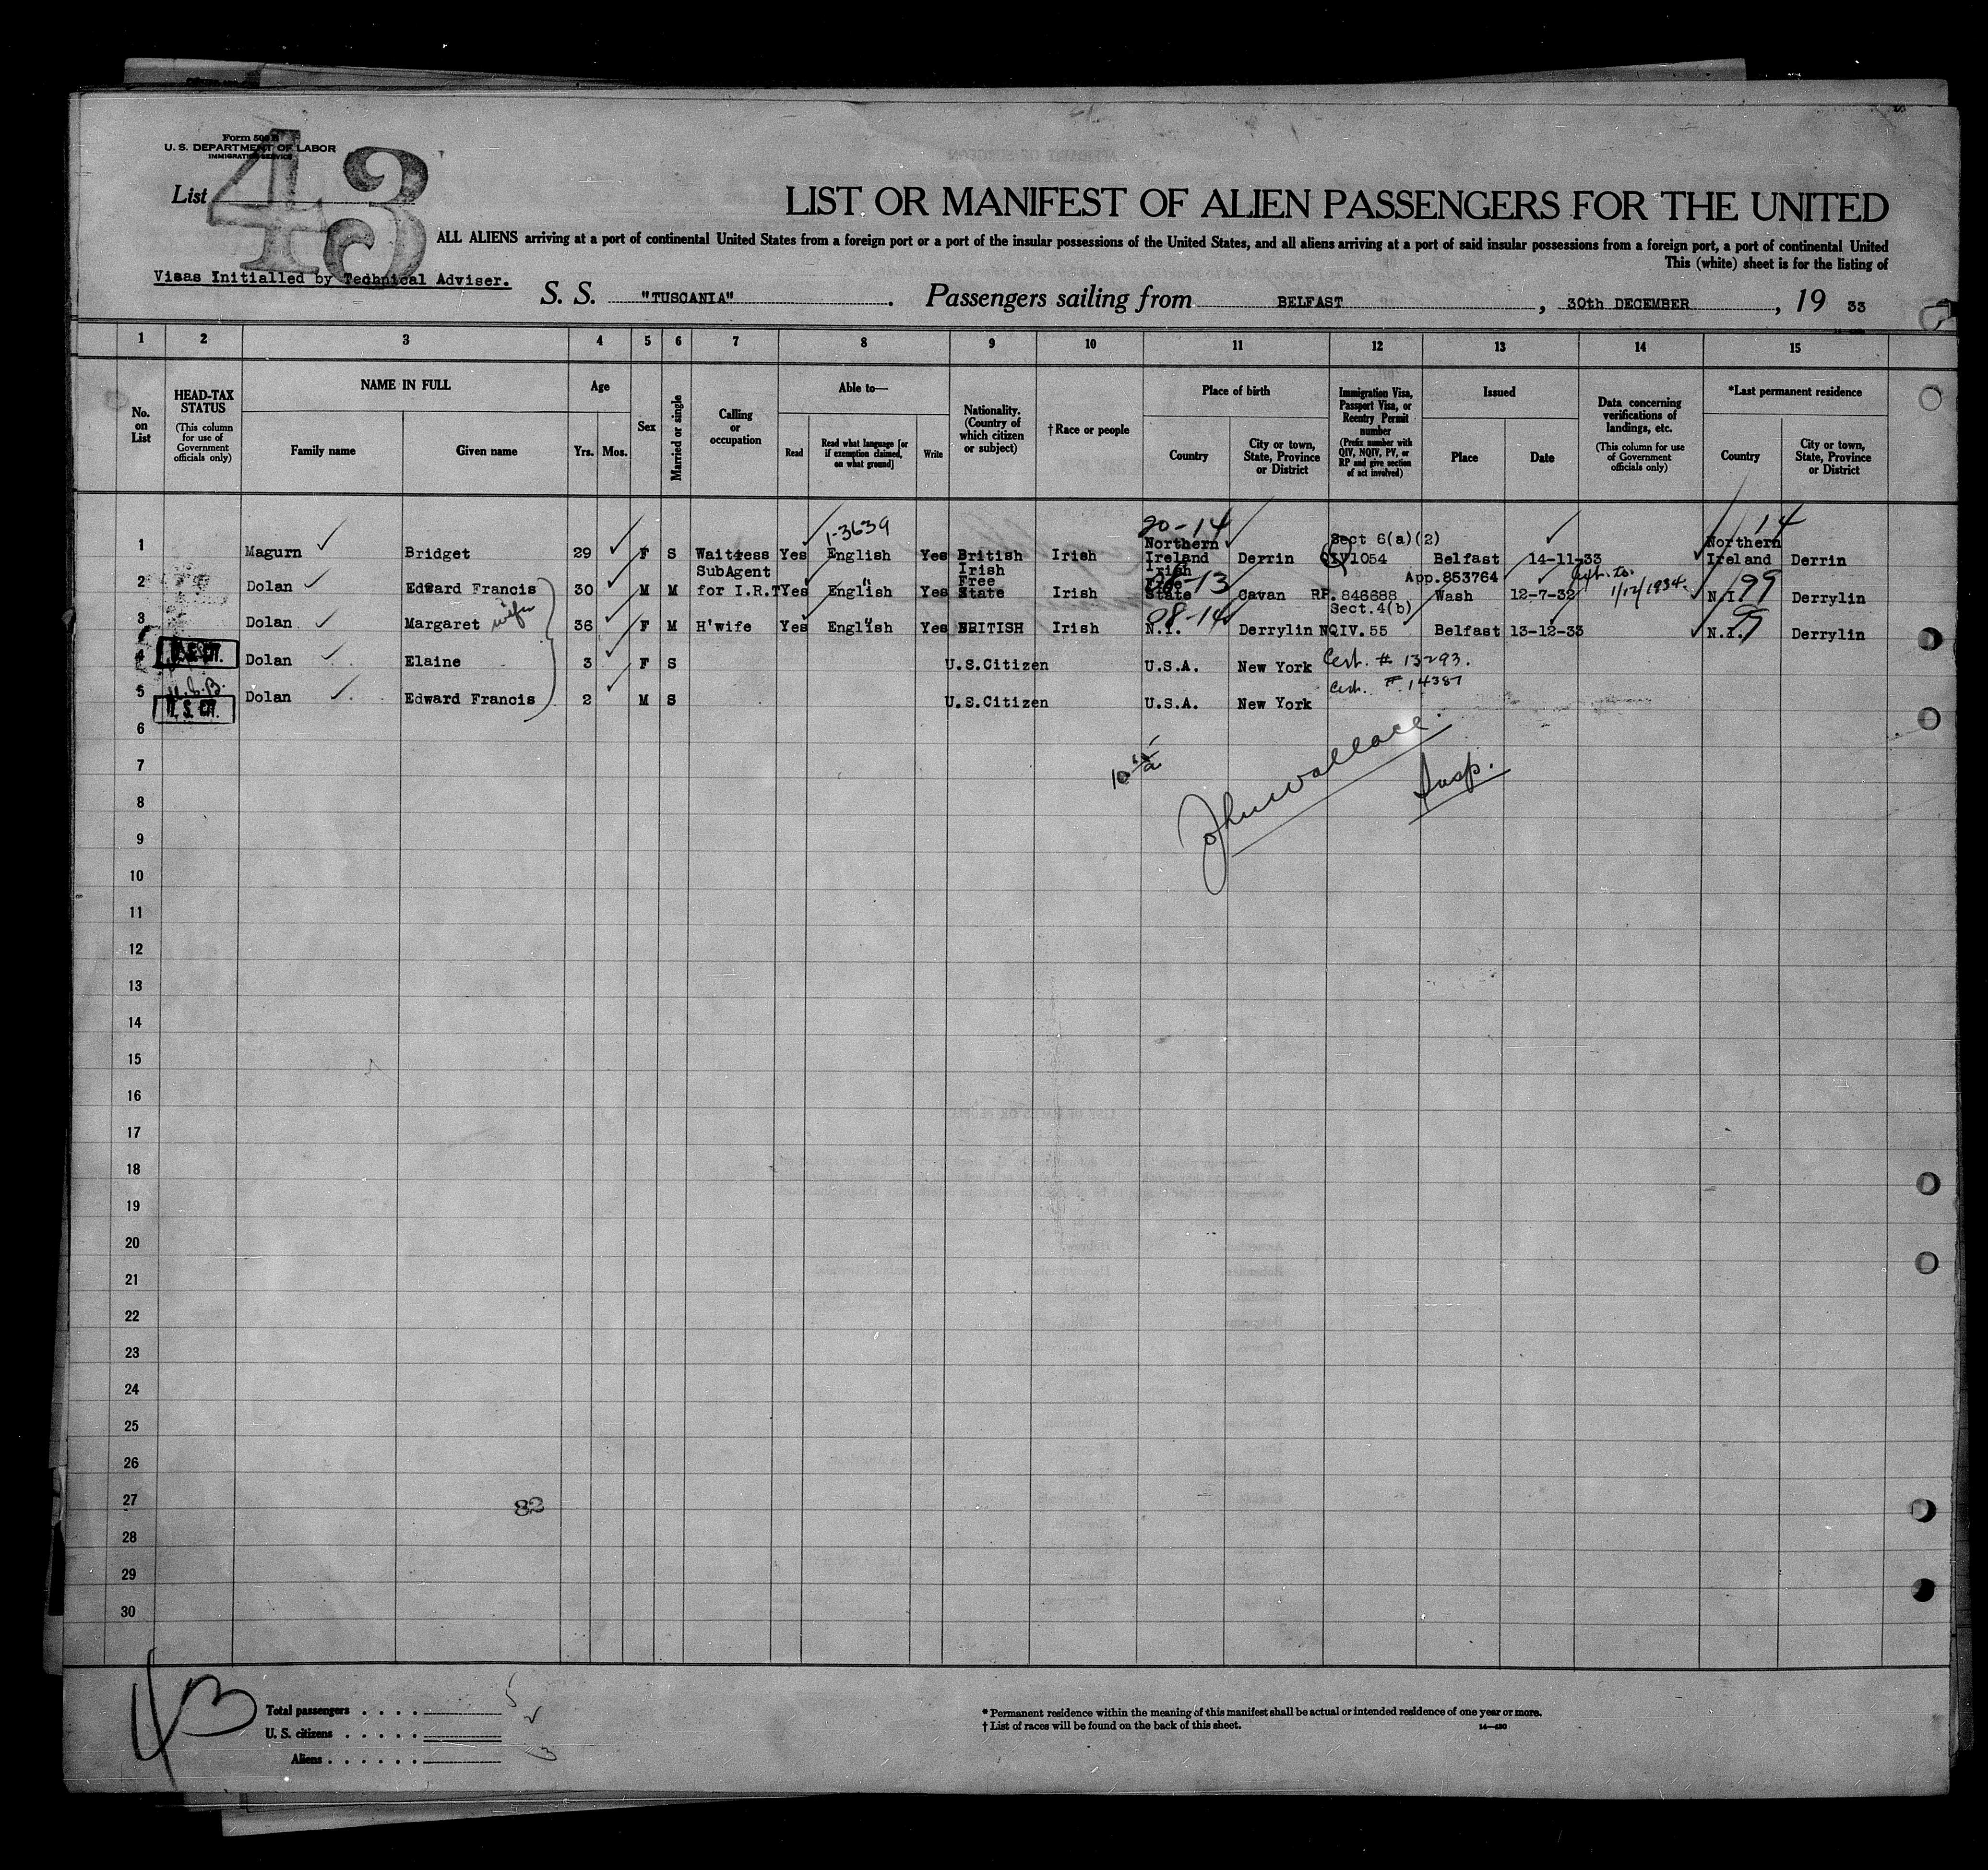 Form 500 B
U. S. DEPARTMENT OF LABOR
IMMIGRATION SERVICE
List 43
LIST OR MANIFEST OF ALIEN PASSENGERS FOR THE UNITED
ALL ALIENS arriving at a port of continental United States from a foreign port or a port of the insular possessions of the United States, and all aliens arriving at a port of said insular possessions from a foreign port, a port of continental United
This (white) sheet is for the listing of
Visas Initialled by Technical Adviser.
S. S. "TUSCANIA". Passengers sailing from BELFAST, 30th DECEMBER, 19 33
1 2 3 4 5 6 7 8 9 10 11 12 13 14 15
No. on List
HEAD-TAX STATUS (This column for use of Government officials only)
NAME IN FULL
Family name Given name
Age
Yrs. Mos.
Sex
Married or single
Calling or occupation
Able to—
Read Read what language [or if exemption claimed, on what ground] Write
Nationality. (Country of which citizen or subject)
†Race or people
Place of birth
Country City or town, State, Province or District
Immigration Visa, Passport Visa, or Reentry Permit number (Prefix number with QIV, NQIV, PV, or RP and give section of act involved)
Issued
Place Date
Data concerning verifications of landings, etc. (This column for use of Government officials only)
*Last permanent residence
Country City or town, State, Province or District
1-3639 20-14 Sect 6(a)(2) 14
1 Magurn Bridget 29 F S Waitress Yes English Yes British Irish Northern Ireland Derrin QIV1054 Belfast 14-11-33 Northern Ireland Derrin
App.853764 Ext. to 1/12/1934.
2 Dolan Edward Francis 30 M M SubAgent for I.R.T Yes English " Yes Irish Free State Irish Irish Free State 13 Cavan RP. 846688 Wash 12-7-32 N.I. 99 Derrylin
08-14 Sect.4(b)
3 Dolan Margaret wife 36 F M H'wife Yes English " Yes BRITISH Irish N.I. Derrylin NQIV.55 Belfast 13-12-33 N.I. Derrylin
4 U.S. CIT. Dolan Elaine 3 F S U.S.Citizen U.S.A. New York Cert. # 13293.
5 U.S. CIT. Dolan Edward Francis 2 M S U.S.Citizen U.S.A. New York Cert. # 14387
6
7
John Wallace
Insp.
8
9
10
11
12
13
14
15
16
17
18
19
20
21
22
23
24
25
26
27
82
28
29
30
43
Total passengers . . . . 5
U. S. citizens . . . . . 2
Aliens . . . . . . 3
* Permanent residence within the meaning of this manifest shall be actual or intended residence of one year or more.
† List of races will be found on the back of this sheet.
14—430